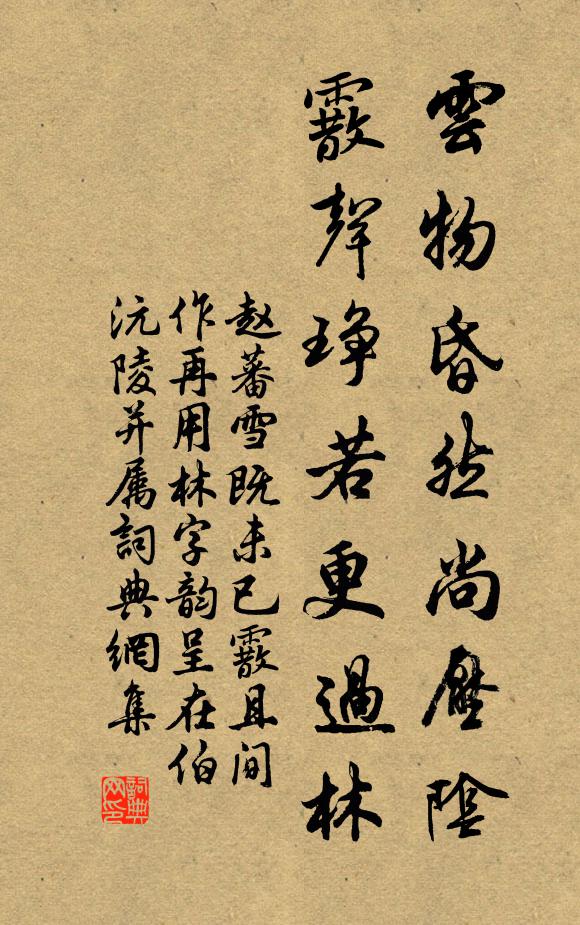 雲物昏然尚壓陰
霰聲琤若更過林
赵蕃雪既未已霰且间
作再用林字韵呈在伯
沅陵并属詞典網集
詞典网印